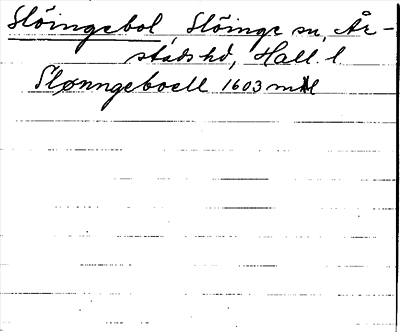 Slöingebol, Slöinge sn, År-
stads hd, Hall. l
Slonngeboell 1603 mtl